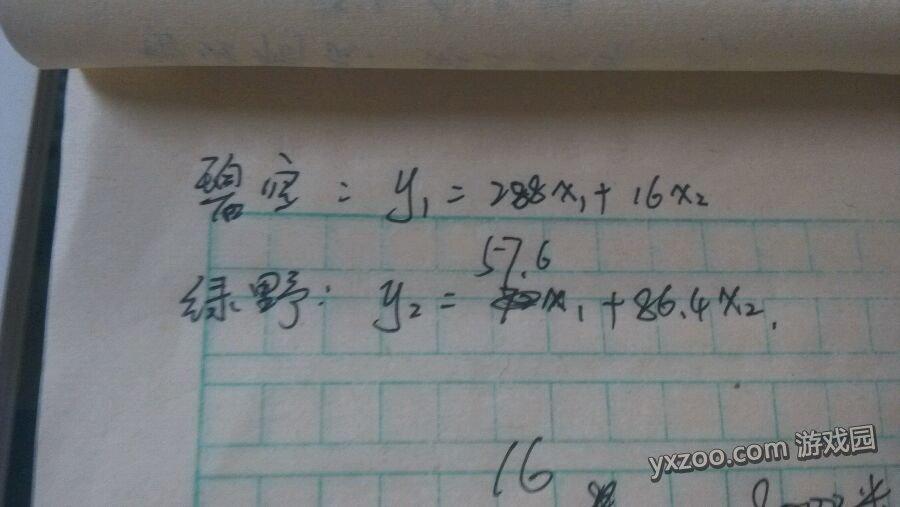 碧空: y₁ = 288x₁ + 16x₂
57.6
绿野: y₂ = x₁ + 86.4x₂.
16
yxzoo.com 游戏园